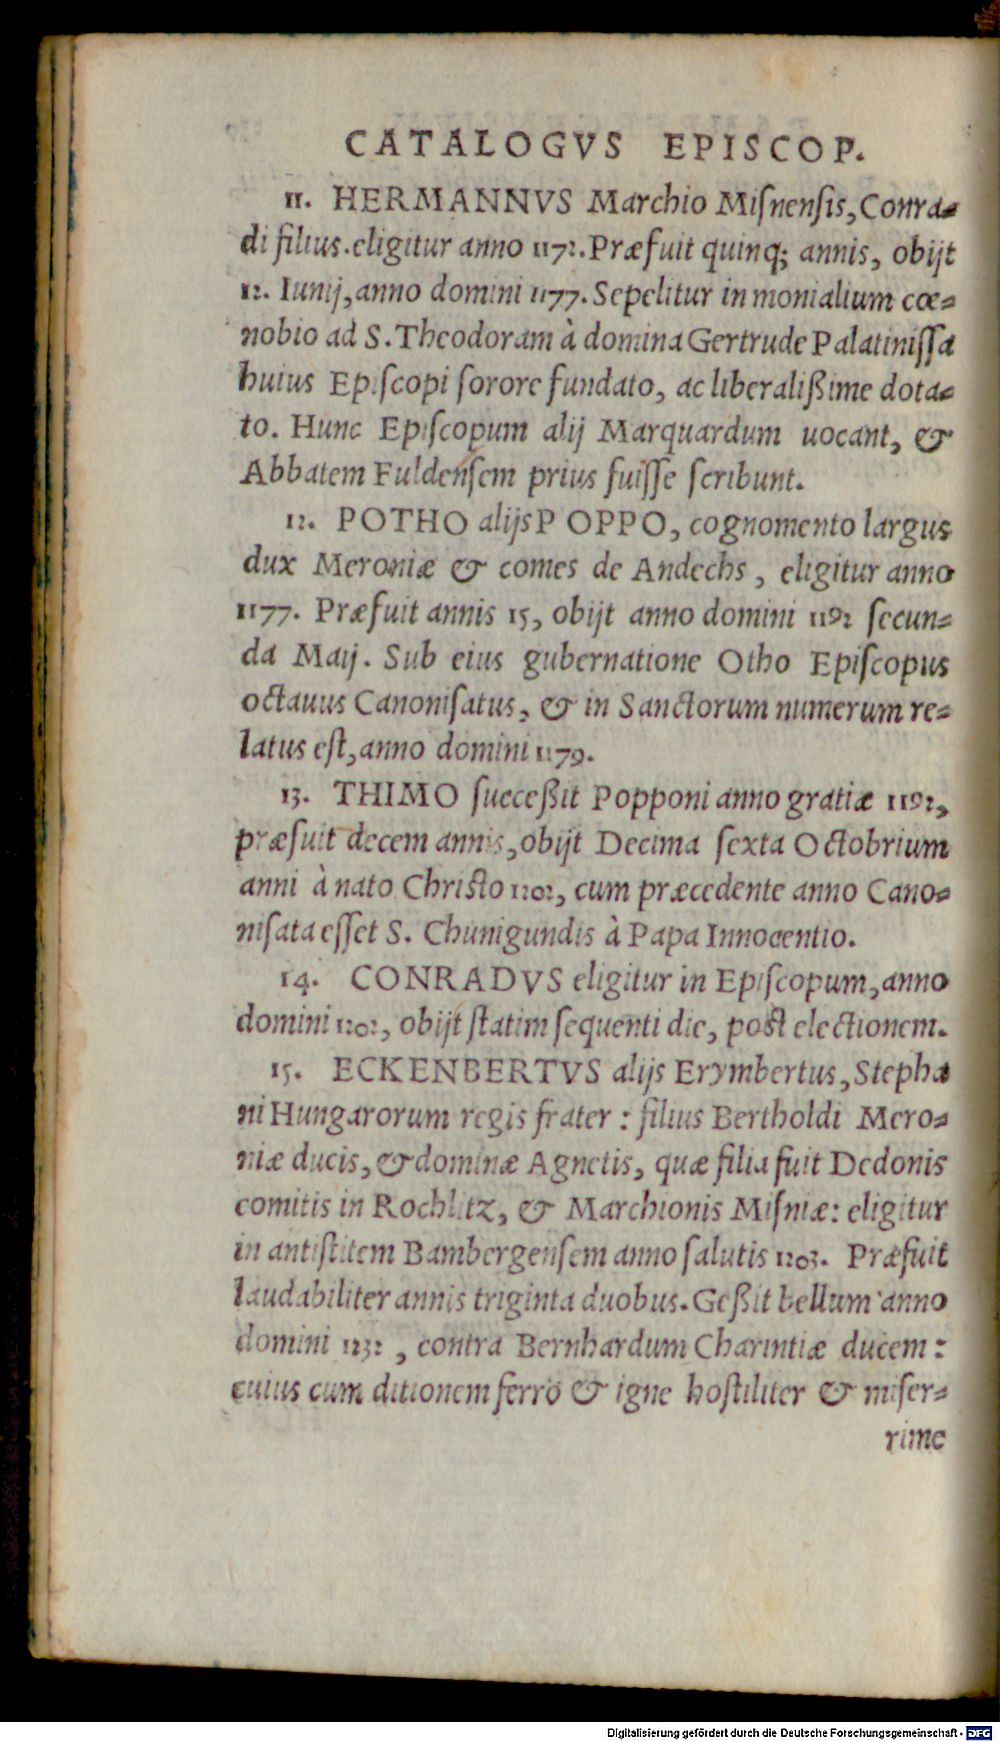 CATALOGVS EPISCOP.
11. HERMANNVS Marchio Miſnenſis, Conra-
di filius. eligitur anno 1172. Præfuit quinq; annis, obijt
12. Iunij, anno domini 1177. Sepelitur in monialium cœ-
nobio ad S. Theodoram à domina Gertrude Palatiniſſa
huius Epiſcopi ſorore fundato, ac liberalißime dota-
to. Hunc Epiſcopum alij Marquardum uocant, &
Abbatem Fuldenſem prius fuiſſe ſcribunt.
12. POTHO alijs P OPPO, cognomento largus
dux Meroniæ & comes de Andechs, eligitur anno
1177. Præfuit annis 15, obijt anno domini 1192 ſecun-
da Maij. Sub eius gubernatione Otho Epiſcopus
octauus Canoniſatus, & in Sanctorum numerum re-
latus eſt, anno domini 1179.
13. THIMO ſucceßit Popponi anno gratiæ 1192,
præfuit decem annis, obijt Decima ſexta Octobrium
anni à nato Chriſto 1202, cum præcedente anno Cano-
niſata eſſet S. Chunigundis à Papa Innocentio.
14. CONRADVS eligitur in Epiſcopum, anno
domini 1202, obijt ſtatim ſequenti die, poſt electionem.
15. ECKENBERTVS alijs Erymbertus, Stepha
ni Hungarorum regis frater: filius Bertholdi Mero-
niæ ducis, & dominæ Agnetis, quæ filia fuit Dedonis
comitis in Rochlitz, & Marchionis Miſniæ: eligitur
in antiſtitem Bambergenſem anno ſalutis 1203. Præfuit
laudabiliter annis triginta duobus. Geßit bellum anno
domini 1232, contra Bernhardum Charintiæ ducem:
cuius cum ditionem ferro & igne hoſtiliter & miſer-
rime
Digitalisierung gefördert durch die Deutsche Forschungsgemeinschaft - DFG